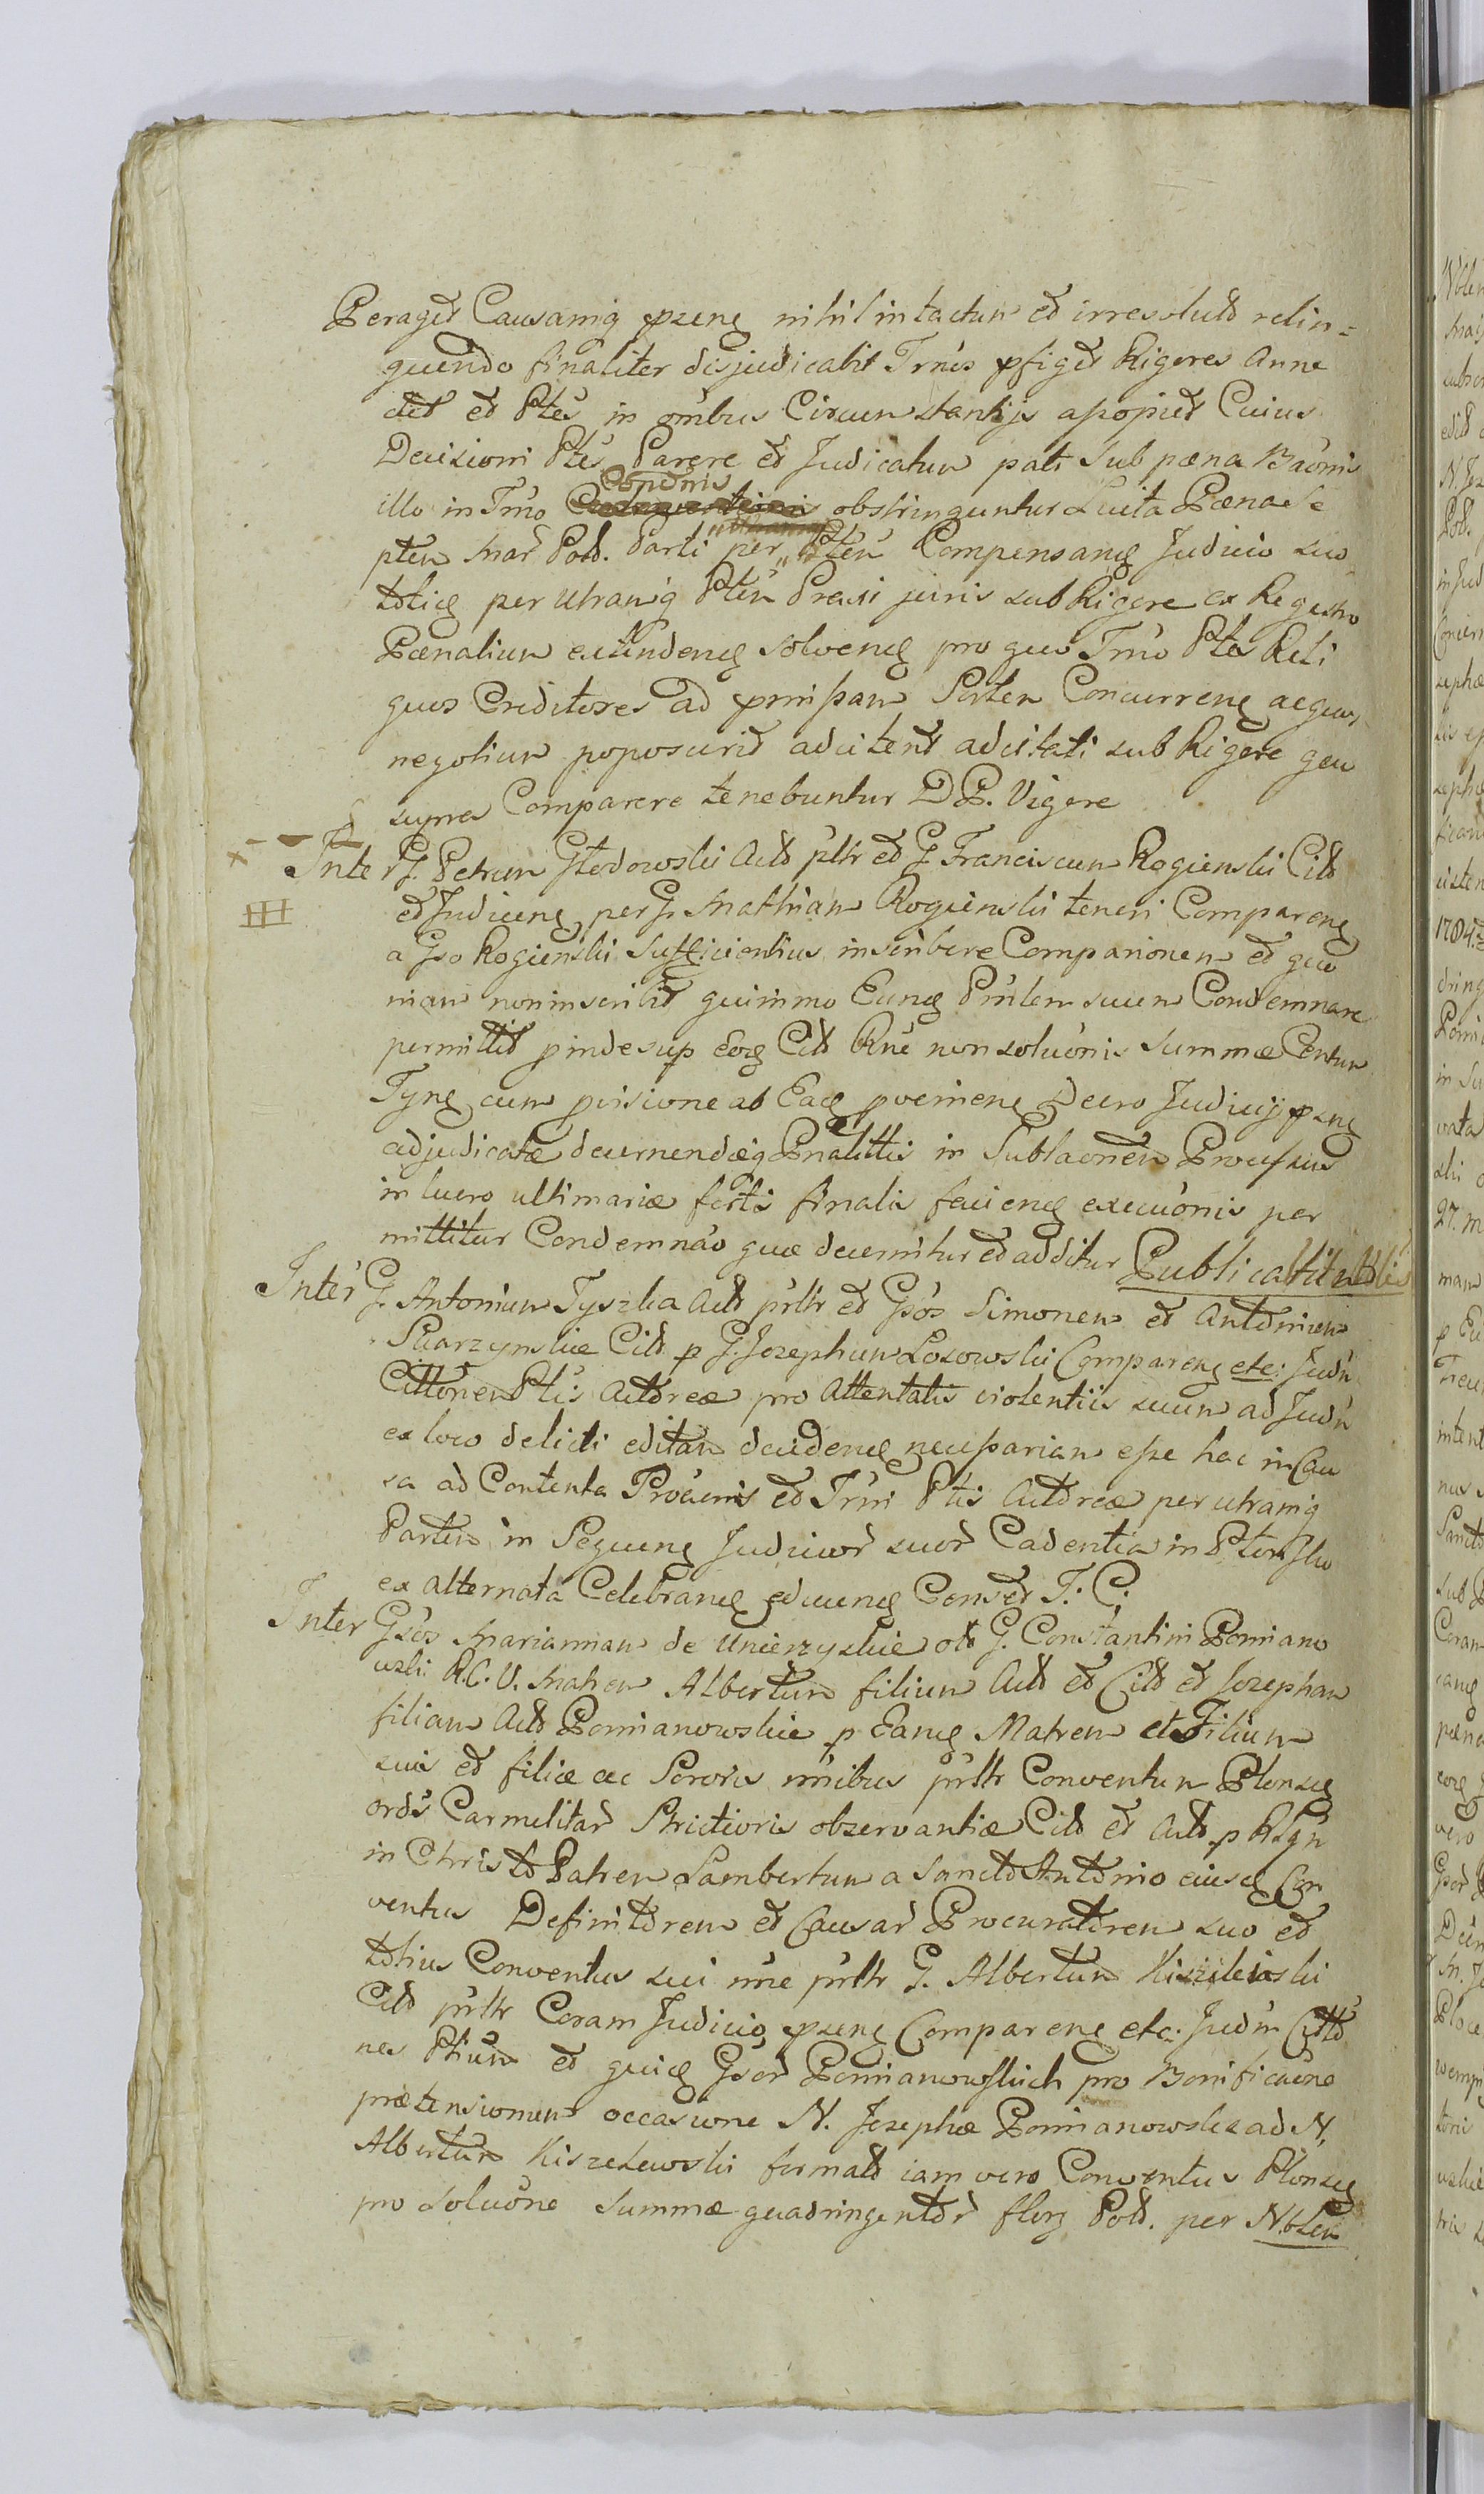 Peraget Causamq pzeng nihil intactum et irresolut relin=
quendo finaliter disjudicabit Trnus pfiget Rigores Anne
ctet et Ptes in omibus Circumstantijs apopiet Cuius
Decisioni Ptes Parere et Judicatum pati sub pæna Baonis
illo in Tmo Copdnis obstringuntur Luita Pæna Se
ptem Mar Pol. Parti per Ptem Compensang Judicio suo
totieg per Utramq Ptem Præuii juris sub Rigore ex Regestro
Pænalium exCindeng solveng pro quo Tmo Ptes Reli
quos Creditores ad pmissam Partem Concurreng aequm
negotium poposcerit adcitent adcitati sub Rigore quu
supra Comparere tenebuntur D P. Vigore
Inter G. Petrum Głodowski Act pltr et G Franciscum Rogienski Cit
et Judiceng per G. Mathiam Rogienski teneri Compareng
a Gso Rogienski Sufficientius inscribere Comparionem et quo
niam non inscribit quinimo Eung Pnlem suum Condemnare
permittit pindesup Eorg Cit Rne non soluonis Summæ Centum
Tyng cum puisione ab Eag poemieng Decro Judicij pzng
adjudicatæ decernendæq Pnalittis in Sublaonem Processus
in lucro ultimariæ forti finalis facieng execuonis per
mittitur Condemnao quæ decernitur et additur Publicabitubilis
Inter G. Antonium Tyszka Act pnltr et Gsos Simonem et Antonium
Skarzynskie Cit p G. Josephum Losowski Compareng etc: Judm
Cittonem Ptis Actoreæ pro Attentatis violentiis suum ad Judm
ex loco delicti editam decideng necessariam esse hac in Cau
sa ad Contenta Procemis et Trni Ptis Actoreæ per utramq
Partem in Sequeng Judicior suor Cadentia in Ptorslu
ex alternata Celebrang educeng Censet T. C.
Inter Gsos Mariannam de Unierzyskie olt G. Constantini Pomiano
wski R.C.V. Matrem Albertum filium Act et Cit et Josepham
filiam Act Pomianowskie p Eang Matrem et Filium
suis et filiæ ac Sororis nnibus pnltr Conventum Plonseg
ords Carmelitar Strictioris observantiæ Cit et Act p Rlgn
in Christo Patrem Lambertum a Sancto Antonio eiusg Con
ventus Definitorem et Causar Procuratorem suo et
totius Conventus sui nne pnltr G. Albertum Kiszelewski
Cit pnltr Coram Judicio pzeng Compareng etc. Judm Citto
nes Ptium et quieg Gsor Pomianowskich pro Bonificaone
prætensionum occasione N. Josephæ Pomianowska ad N.
Albertum Kiszelewski format iam vero Conventus Plonseg
pro Soluone Summæ quadringentor florg Pol. per Nblem